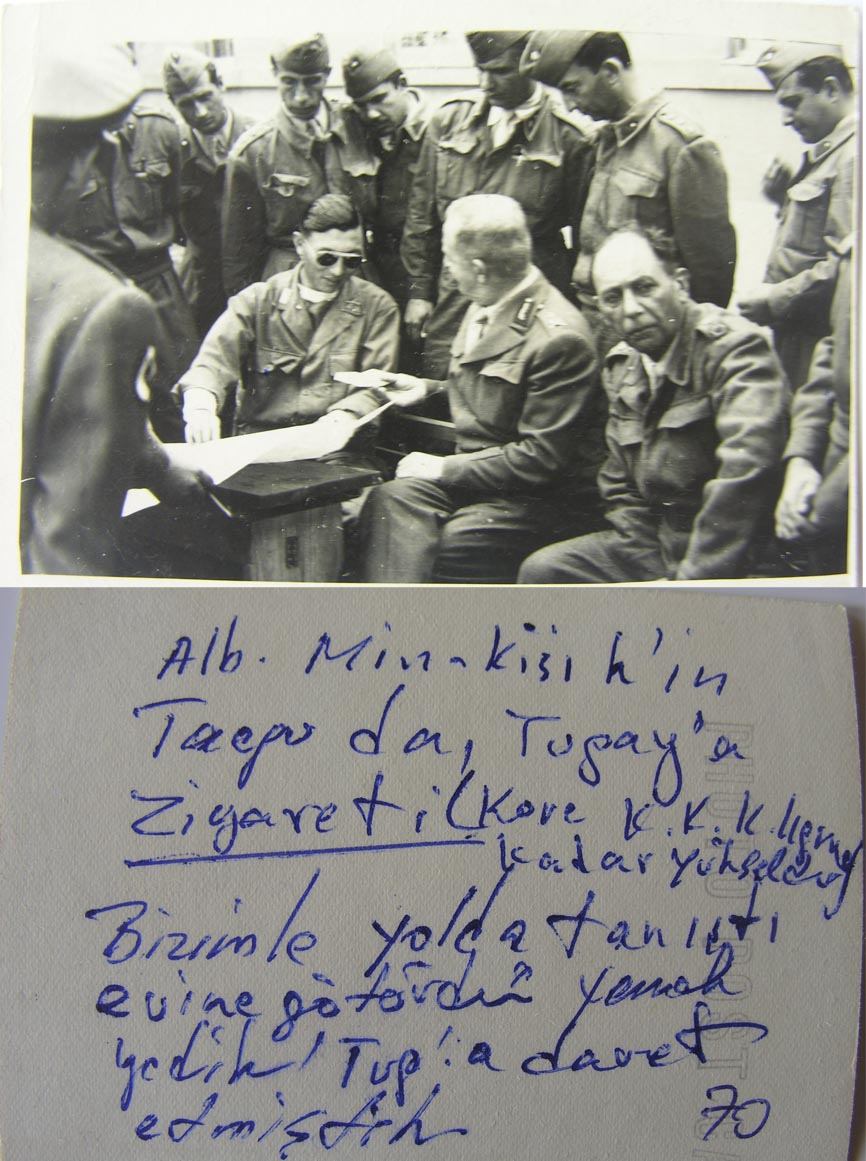 Alb. Min-Kişi k'in
Taegu da, Tugay'a
Ziyareti (Kore K.K.K.lığına
kadar yükseldi)
Bizimle yolda tanıştı
evine götürdü yemek
yedik! Tug'a davet
etmiştik
70